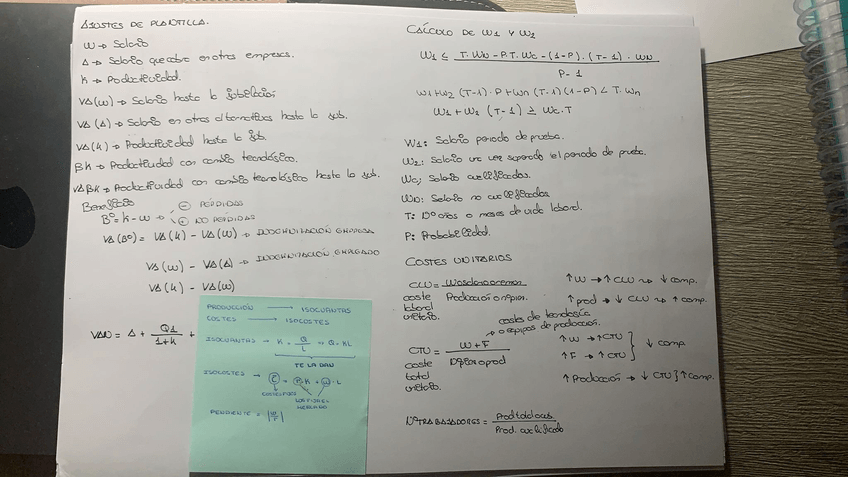 AJUSTES DE PLANTILLA.
W → Salario
A → Salario que cobra en otras empresas.
K → Productividad.
VA(W) → Salario hasta la jubilación
VA(A) → Salario en otras alternativas hasta la jub.
VA(K) → Productividad hasta la jub.
BK → Productividad con cambio tecnológico.
VABK → Productividad con cambio tecnológico hasta la jub.
Beneficio
Bº = K - W → ⊖ PÉRDIDAS
⊕ NO PÉRDIDAS
VA(Bº) = VA(K) - VA(W) → INDEMNIZACIÓN EMPRESA
VA(W) - VA(A) → INDEMNIZACIÓN EMPLEADO
VA(K) - VA(W)
VAN = A + Q1 / 1+K +
PRODUCCIÓN → ISOCUANTAS
COSTES → ISOCOSTES
ISOCUANTAS → K = Q / L → Q = KL
TE LA DAN
ISOCOSTES → C = r·K + W·L
COSTE FIJO
LOS FIJA EL
MERCADO
PENDIENTE = |W / r|
CÁLCULO DE W1 Y W2
W1 ≤ T·WN - P·T·WC - (1-P)·(T-1)·WN / P-1
W1+W2 (T-1)·P+Wn (T-1)(1-P) < T·Wn
W1+W2 (T-1) ≥ WC·T
W1: Salario periodo de prueba.
W2: Salario una vez superado el periodo de prueba.
WC: Salario cualificados.
WN: Salario no cualificados
T: Nº años o meses de vida laboral.
P: Probabilidad.
COSTES UNITARIOS
CLU =
coste
laboral
unitario.
↑W → ↑CLU → ↓ comp.
↑prod → ↓ CLU → ↑ comp.
costes de tecnología
o equipos de producción.
CTU = W + F /
coste
total
unitario.
↑W → ↑CTU
↑F → ↑CTU } ↓ comp
↑Producción → ↓ CTU } ↑ comp.
Nº TRABAJADORES = / Prod. cualificado